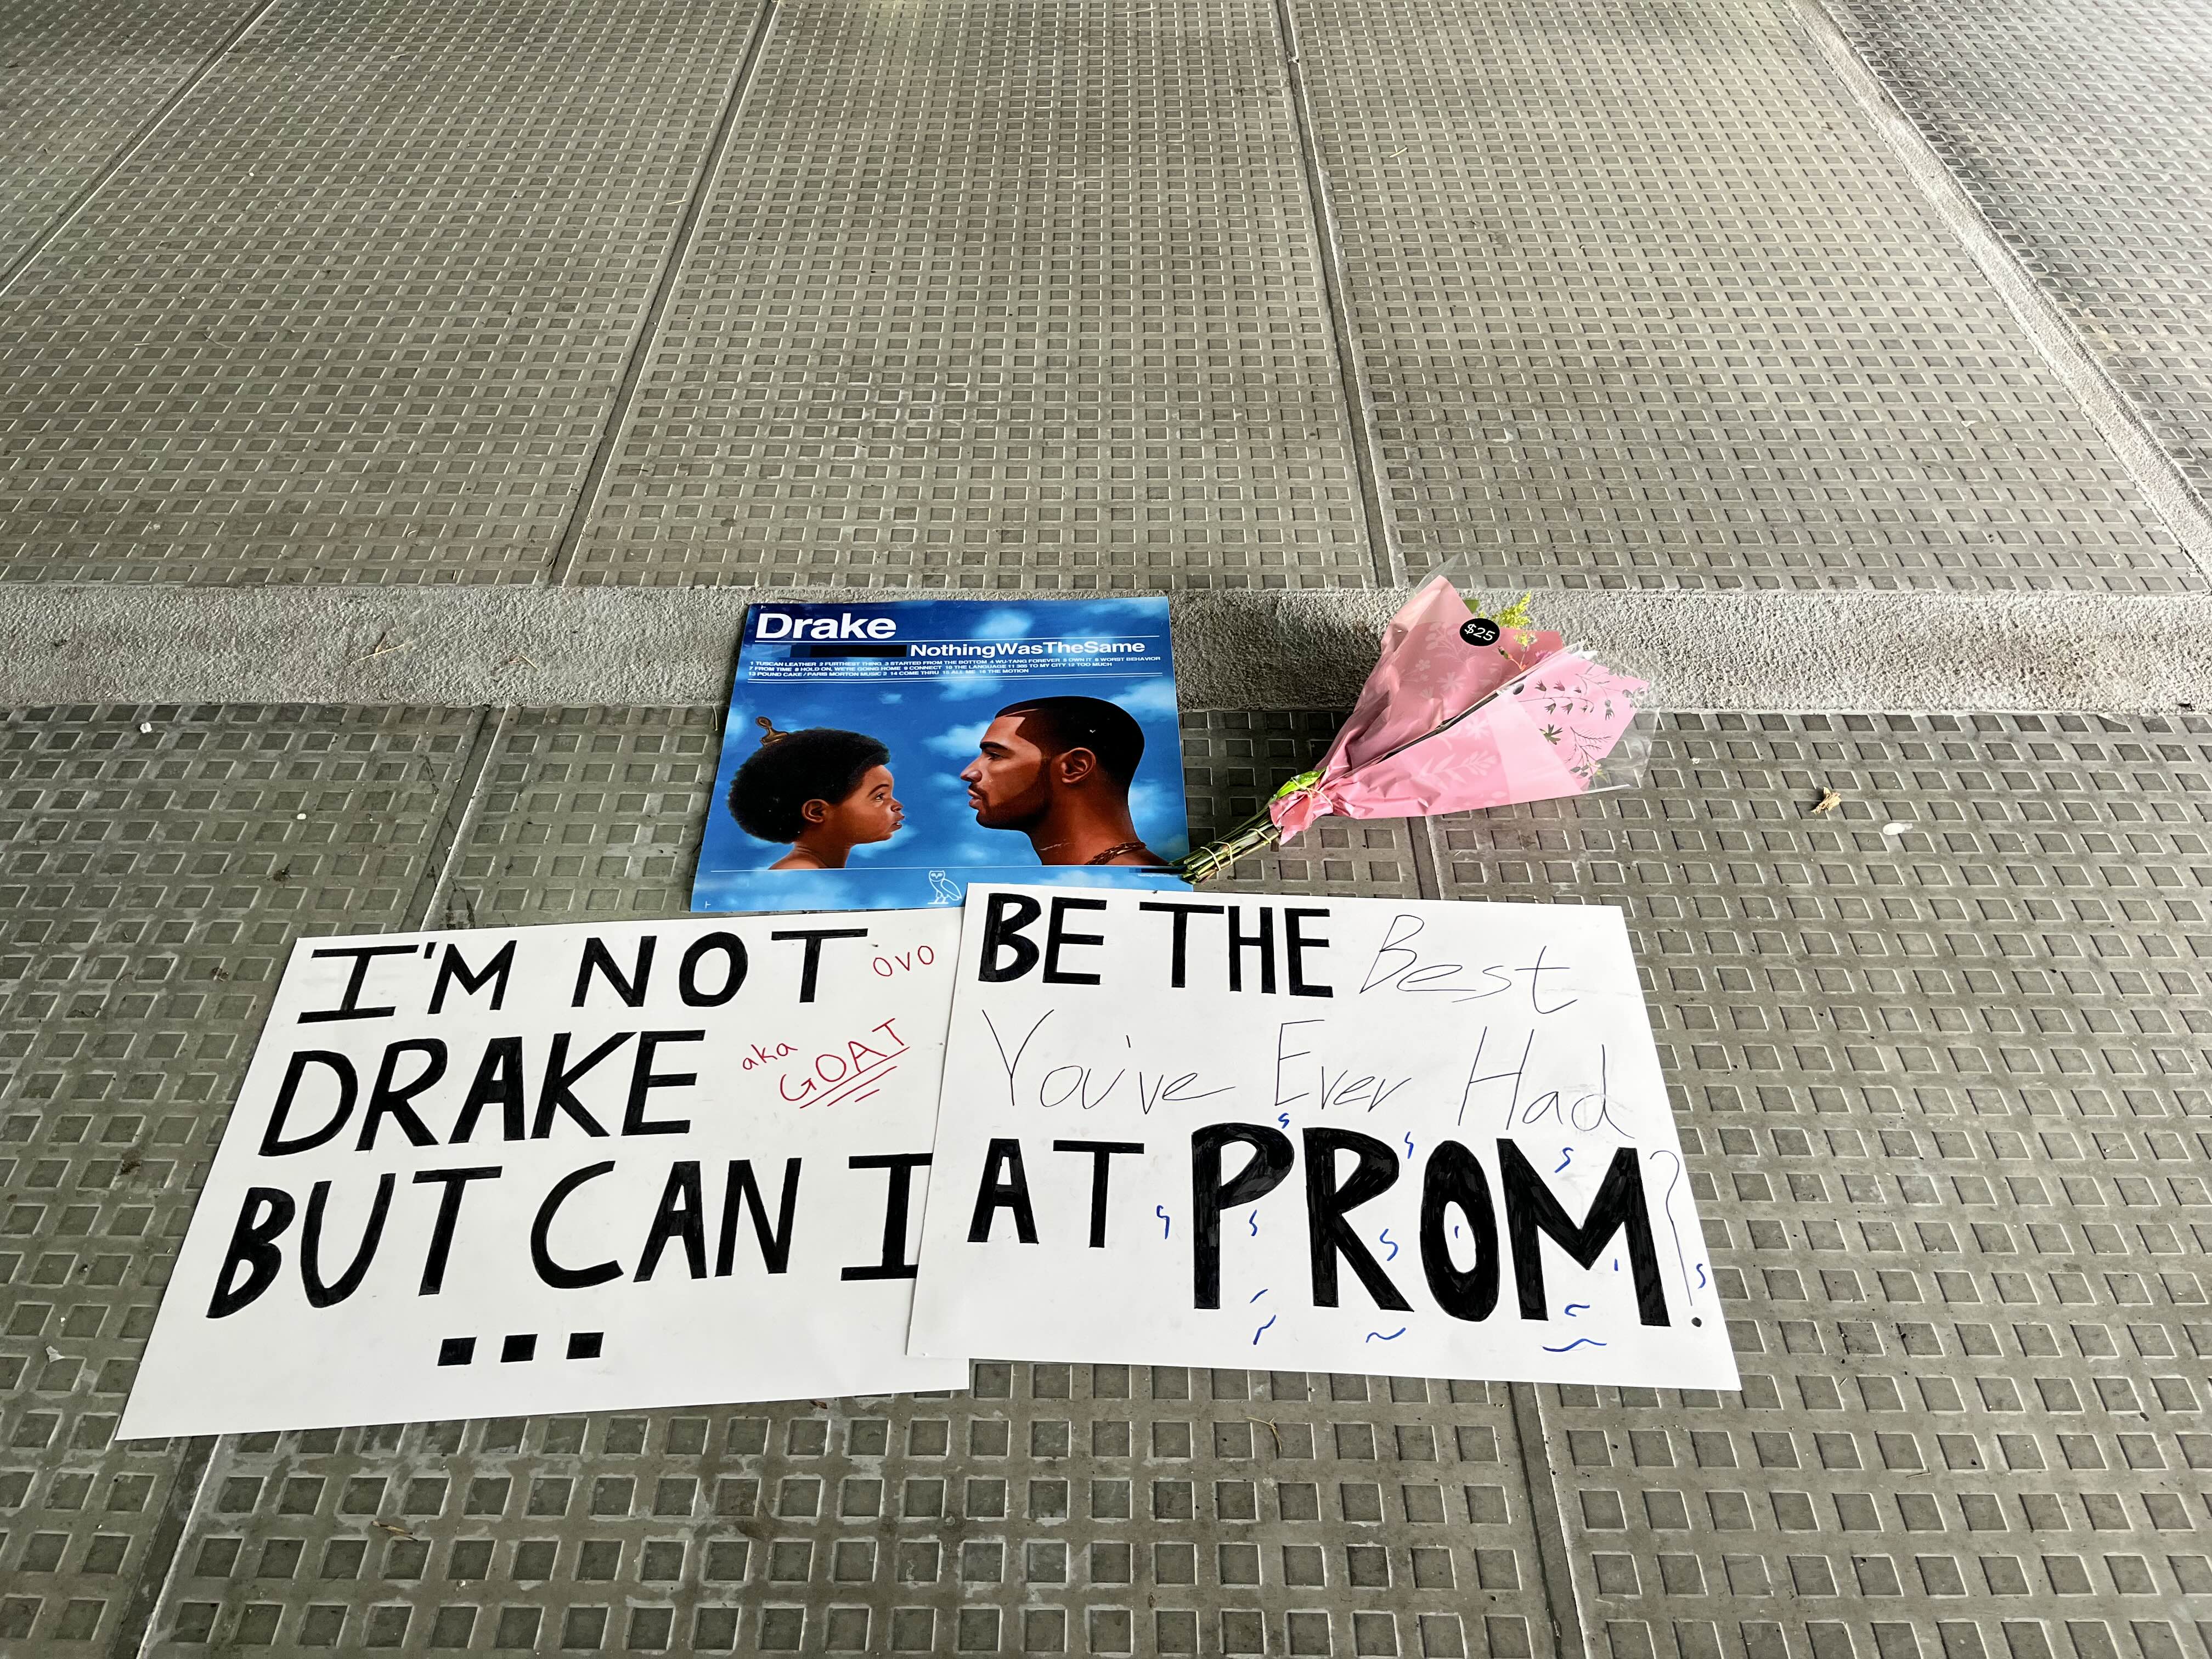 Drake
NothingWasTheSame
1 TUSCAN LEATHER 2 FURTHEST THING 3 STARTED FROM THE BOTTOM 4 WU-TANG FOREVER 5 OWN IT 6 WORST BEHAVIOR
7 FROM TIME 8 HOLD ON, WE'RE GOING HOME 9 CONNECT 10 THE LANGUAGE 11 305 TO MY CITY 12 TOO MUCH
13 POUND CAKE / PARIS MORTON MUSIC 2 14 COME THRU 15 ALL ME 16 THE MOTION
$25
I'M NOT OVO
DRAKE aka GOAT
BUT CAN I
...
BE THE Best
You've Ever Had
AT PROM?